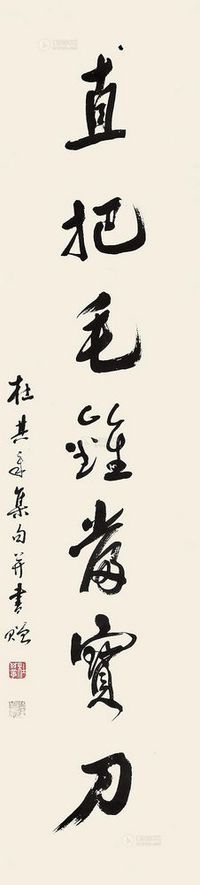 直把毛錐當寶刀
杜其年集句并書贈